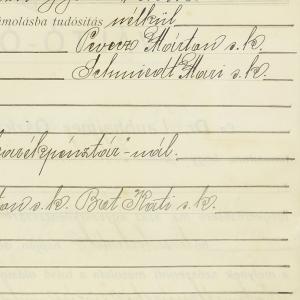 ámolásba tudósítás nélkül
Pevecz Márton s.k.
Schmiedt Mari s.k.
arékpénztár"-nál.
ton s.k. Bat Kati s.k.